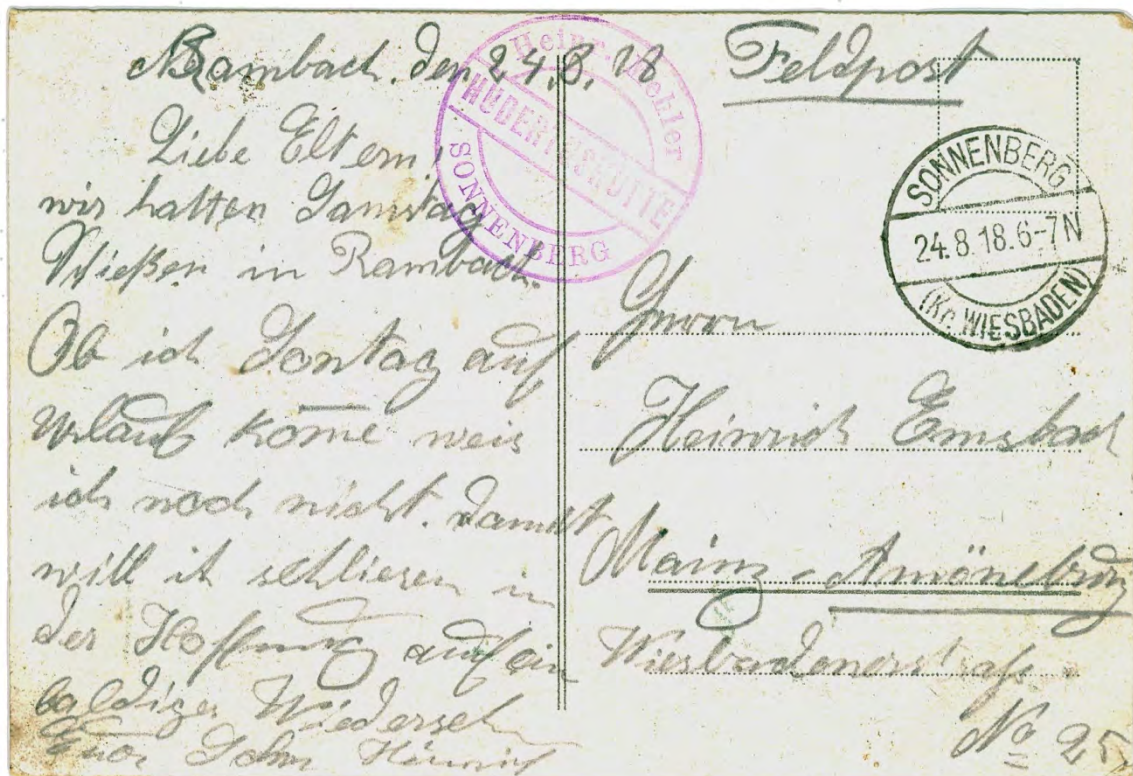 Rambach. den 24.8.18
Liebe Eltern!
wir hatten Samstag
Schießen in Rambach.
Ob ich Sontag auf
urlaub kome weis
ich noch nicht. Damit
will ich schliesen in
der Hoffnung auf ein
baldiges Wiedersehn
Euer Sohn Heinrich
Heinr.
HUBERTUSHÜTTE
SONNENBERG
Feldpost
SONNENBERG
24.8.18.6-7N
(Kr. WIESBADEN)
Herrn
Heinrich Emsbach
Mainz-Amöneburg
Wiesbadenerstraße
No 25